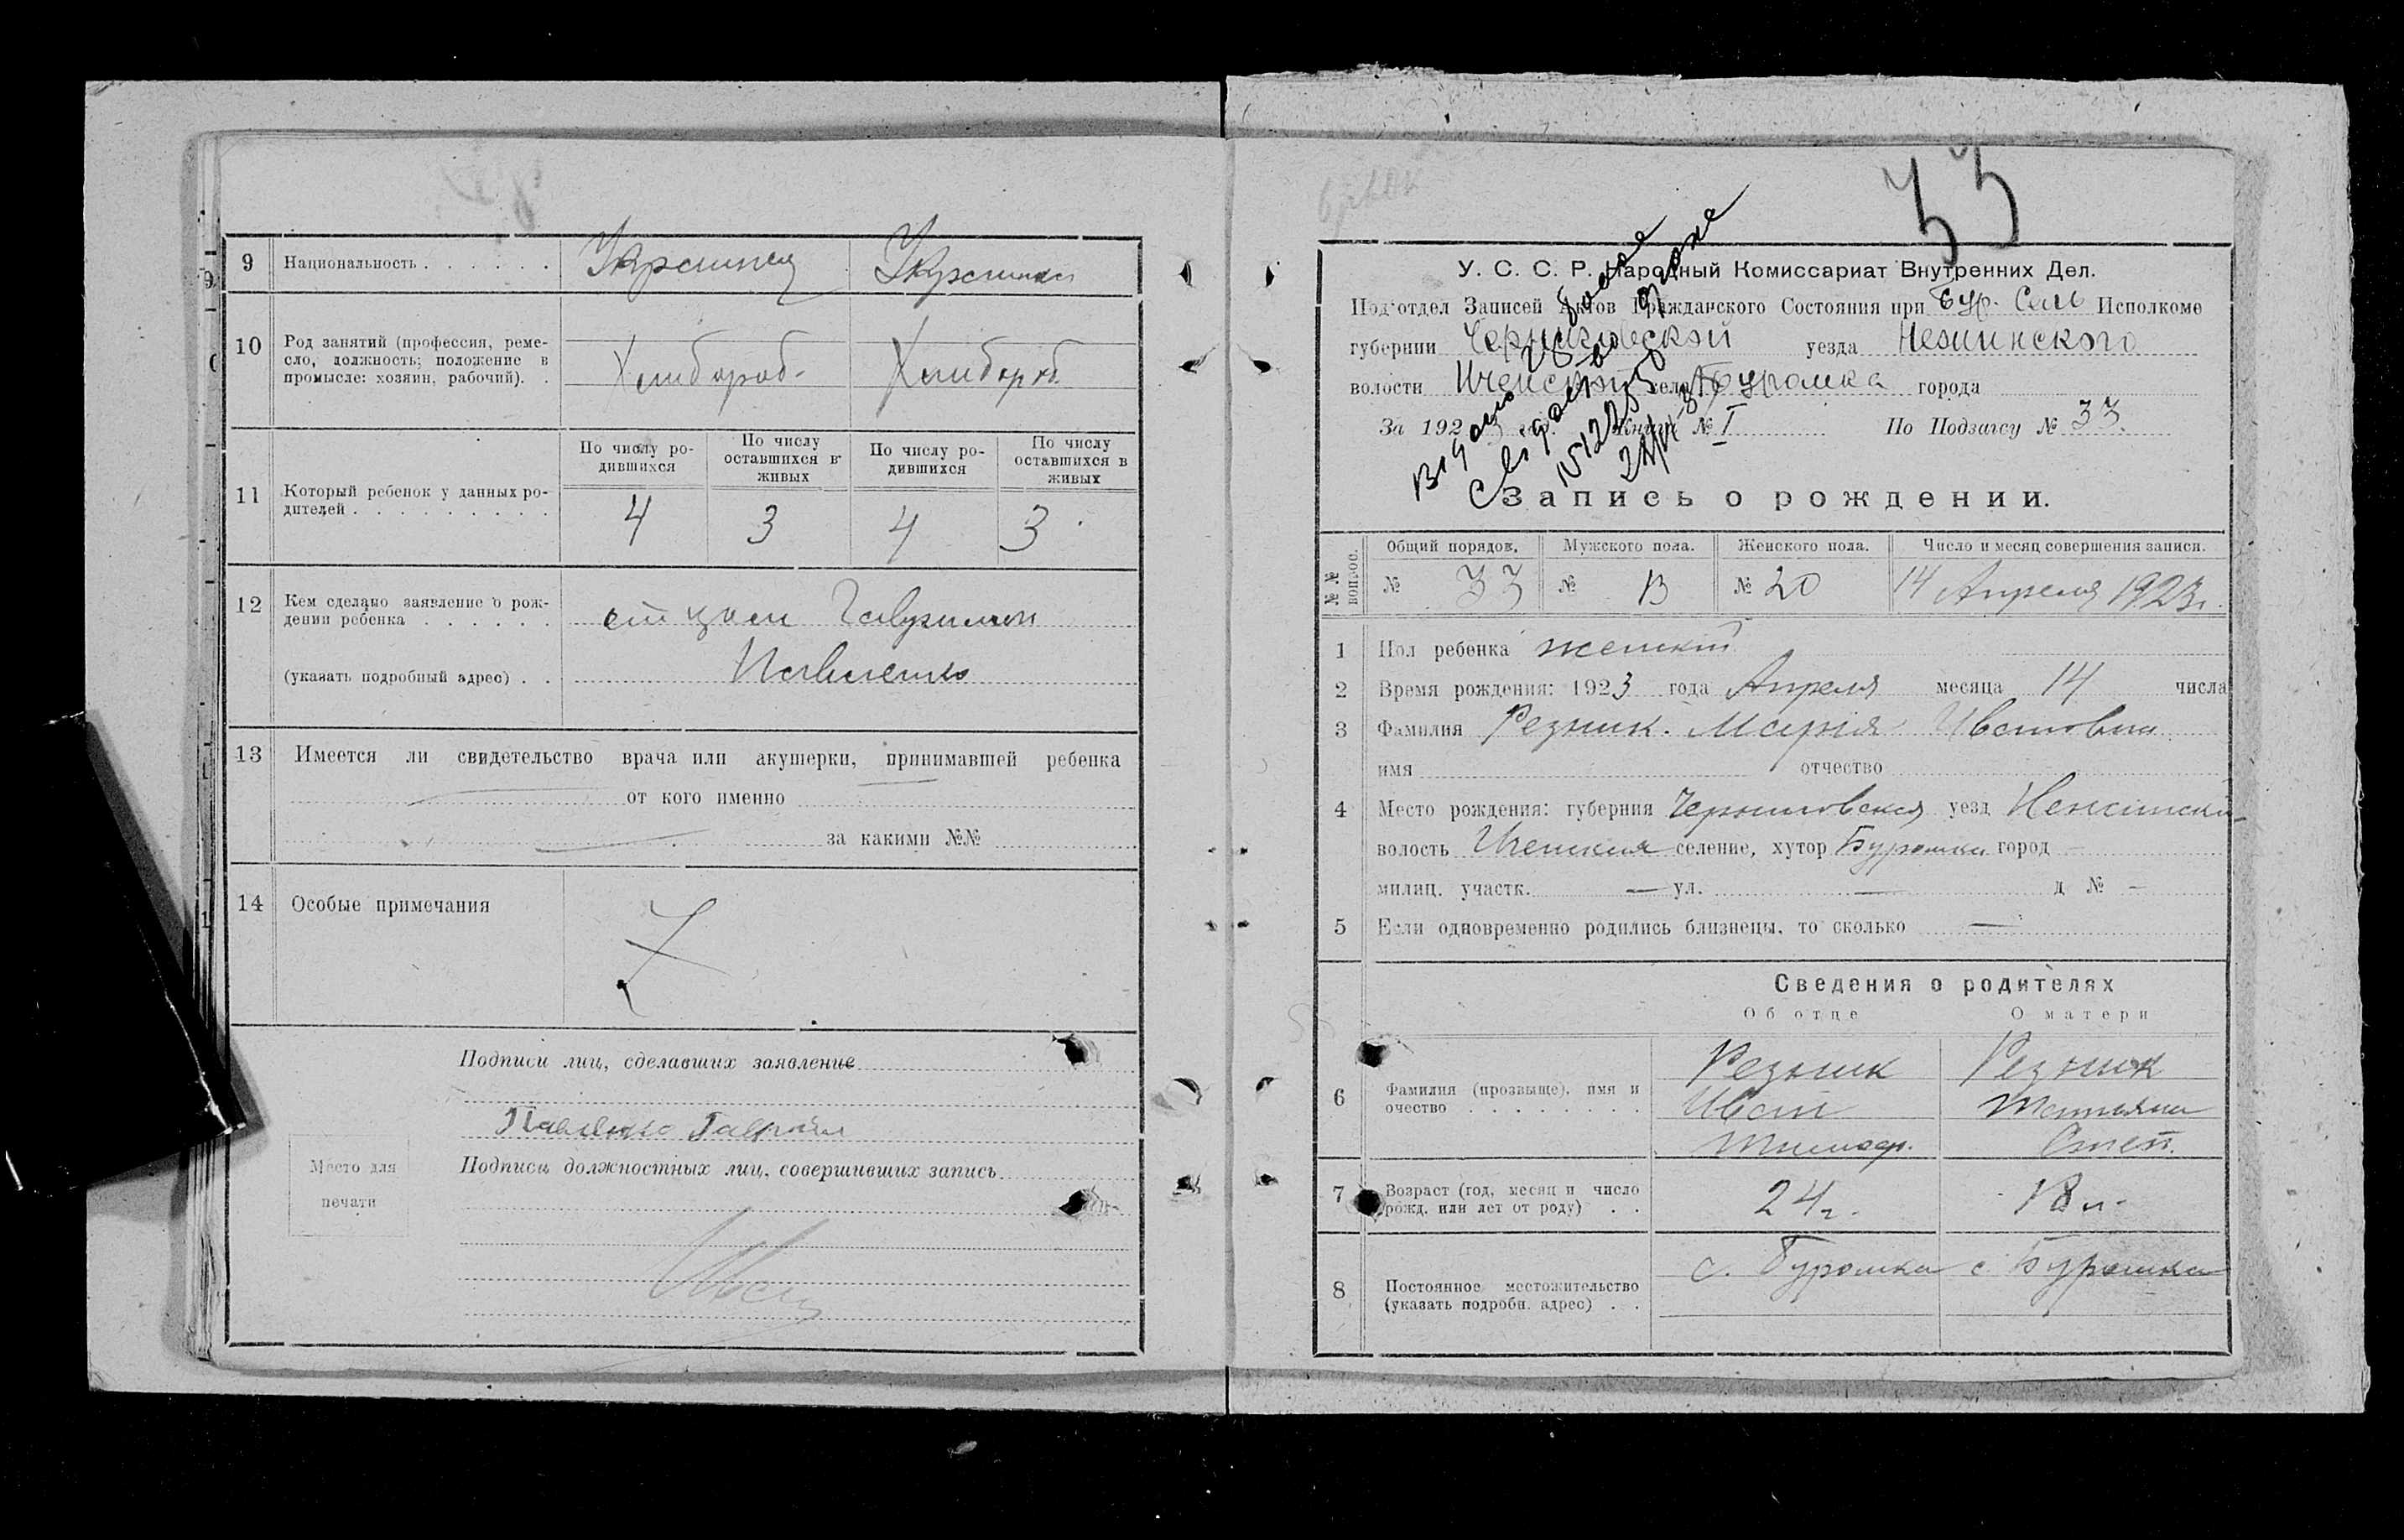 9 Национальность . . . . . . Украинец Украинка
10 Род занятий (профессия, реме-
сло, должность; положение в
промысле: хозяин, рабочий). . Хлибороб- Хлибороб.
По числу ро-
дившихся
По числу
оставшихся в
живых
По числу ро-
дившихся
По числу
оставшихся в
живых
11 Который ребенок у данных ро-
дителей . . . . . . . . . 4 3 4 3
12 Кем сделано заявление о рож-
дении ребенка . . . . . . отцом Гавриилом
(указать подробный адрес) . . Павленко
13 Имеется ли свидетельство врача или акушерки, принимавшей ребенка
от кого именно
за какими №№
14 Особые примечания
Подписи лиц, сделавших заявление
Павленко Гавриил
Место для
печати
Подписи должностных лиц, совершивших запись
33
Видано
У. С. С. Р. Народный Комиссариат Внутренних Дел.
Под'отдел Записей Актов Гражданского Состояния при Бур. Сель Исполкоме
губернии Черниговской уезда Нежинского
волости Иченской села Буромка города
За 1923 Книга № I По Подзагсу № 33.
Запись о рождении.
№№ вопрос. Общий порядов. Мужского пола. Женского пола. Число и месяц совершения записи.
№ 33 № 13 № 20 14 Апреля 1923г.
1 Пол ребенка женский
2 Время рождения: 1923 года Апреля месяца 14 числа
3 Фамилия Резник. Мария Ивановна
имя отчество
4 Место рождения: губерния Черниговская уезд Нежинский
волость Иченская селение, хутор Буромка город —
милиц. участк. — ул. — д № —
5 Если одновременно родились близнецы, то сколько —
Сведения о родителях
Об отце О матери
6 Фамилия (прозвище), имя и
очество . . . . . . . .
Резник
Иван
Тимоф.
Резник
Татьяна
Степ.
7 Возраст (год, месяц и число
рожд. или лет от роду) . . 24 г. 18 л.
8 Постоянное местожительство
(указать подробн. адрес) . . с. Буромка с. Буромка